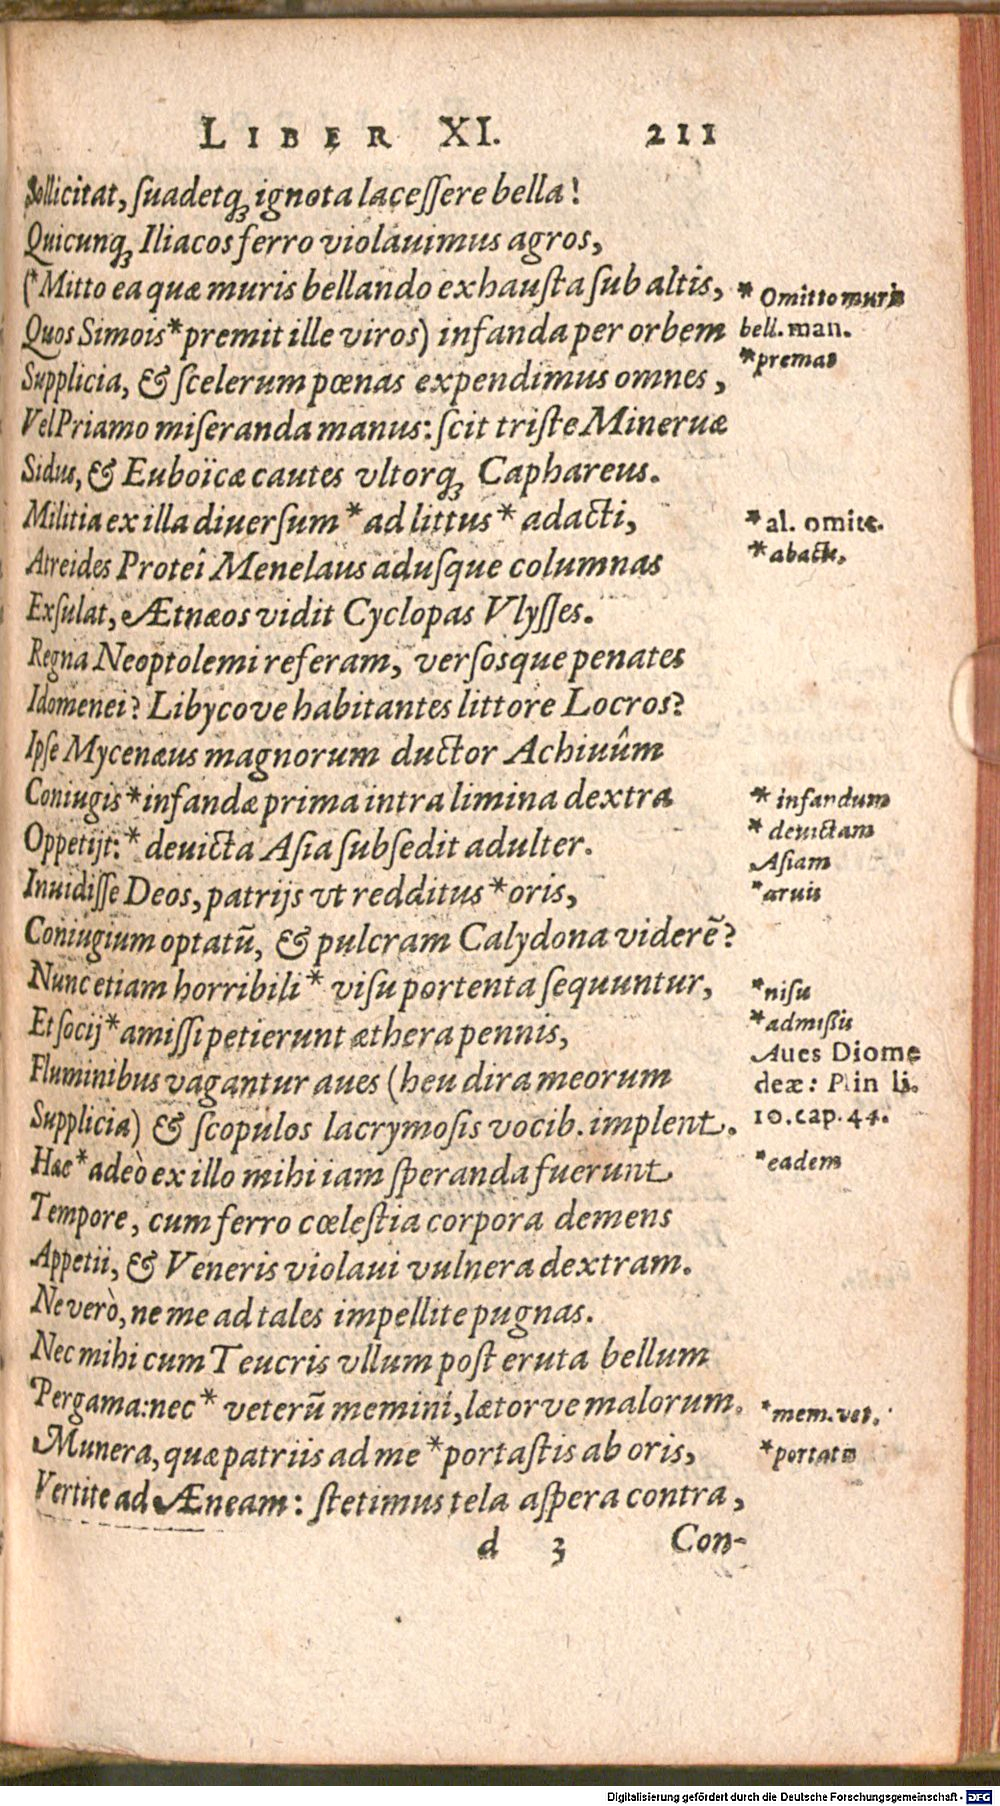 LIBER XI. 211
Sollicitat, ſuadetq́ꝫ ignota laceſſere bella!
Quicunqꝫ Iliacos ferro violauimus agros,
(*Mitto ea quæ muris bellando exhauſta ſub altis,
Quos Simois*premit ille viros) infanda per orbem
Supplicia, & ſcelerum pœnas expendimus omnes,
Vel Priamo miſeranda manus: ſcit triſte Mineruæ
Sidus, & Euboïcæ cautes vltorqꝫ Caphareus.
Militia ex illa diuerſum*ad littus*adacti,
Atreides Proteî Menelaus aduſque columnas
Exſulat, Ætnæos vidit Cyclopas Vlyſſes.
Regna Neoptolemi referam, verſosque penates
Idomenei? Libycove habitantes littore Locros?
Ipſe Mycenæus magnorum ductor Achiuûm
Coniugis*infandæ prima intra limina dextra
Oppetijt:* deuicta Aſia ſubſedit adulter.
Inuidiſſe Deos, patrijs vt redditus*oris,
Coniugium optatū, & pulcram Calydona viderē?
Nunc etiam horribili* viſu portenta ſequuntur,
Et ſocij*amiſſi petierunt æthera pennis,
Fluminibus vagantur aues (heu dira meorum
Supplicia) & ſcopulos lacrymoſis vocib. implent.
Hæc*adeò ex illo mihi iam ſperanda fuerunt
Tempore, cum ferro cœleſtia corpora demens
Appetii, & Veneris violaui vulnera dextram.
Ne verò, ne me ad tales impellite pugnas.
Nec mihi cum Teucris vllum poſt eruta bellum
Pergama: nec* veterū memini, lætorve malorum.
Munera, quæ patriis ad me*portaſtis ab oris,
Vertite ad Æneam: ſtetimus tela aſpera contra,
d 3 Con-
* Omitto muris
bell. man.
*premat
*al. omitt.
*abacti.
* infandum
* deuictam
Aſiam
*aruis
*niſu
*admißis
Aues Diome
deæ: Plin li.
10. cap. 44.
*eadem
*mem. vet.
*portatis
Digitalisierung gefördert durch die Deutsche Forschungsgemeinschaft - DFG